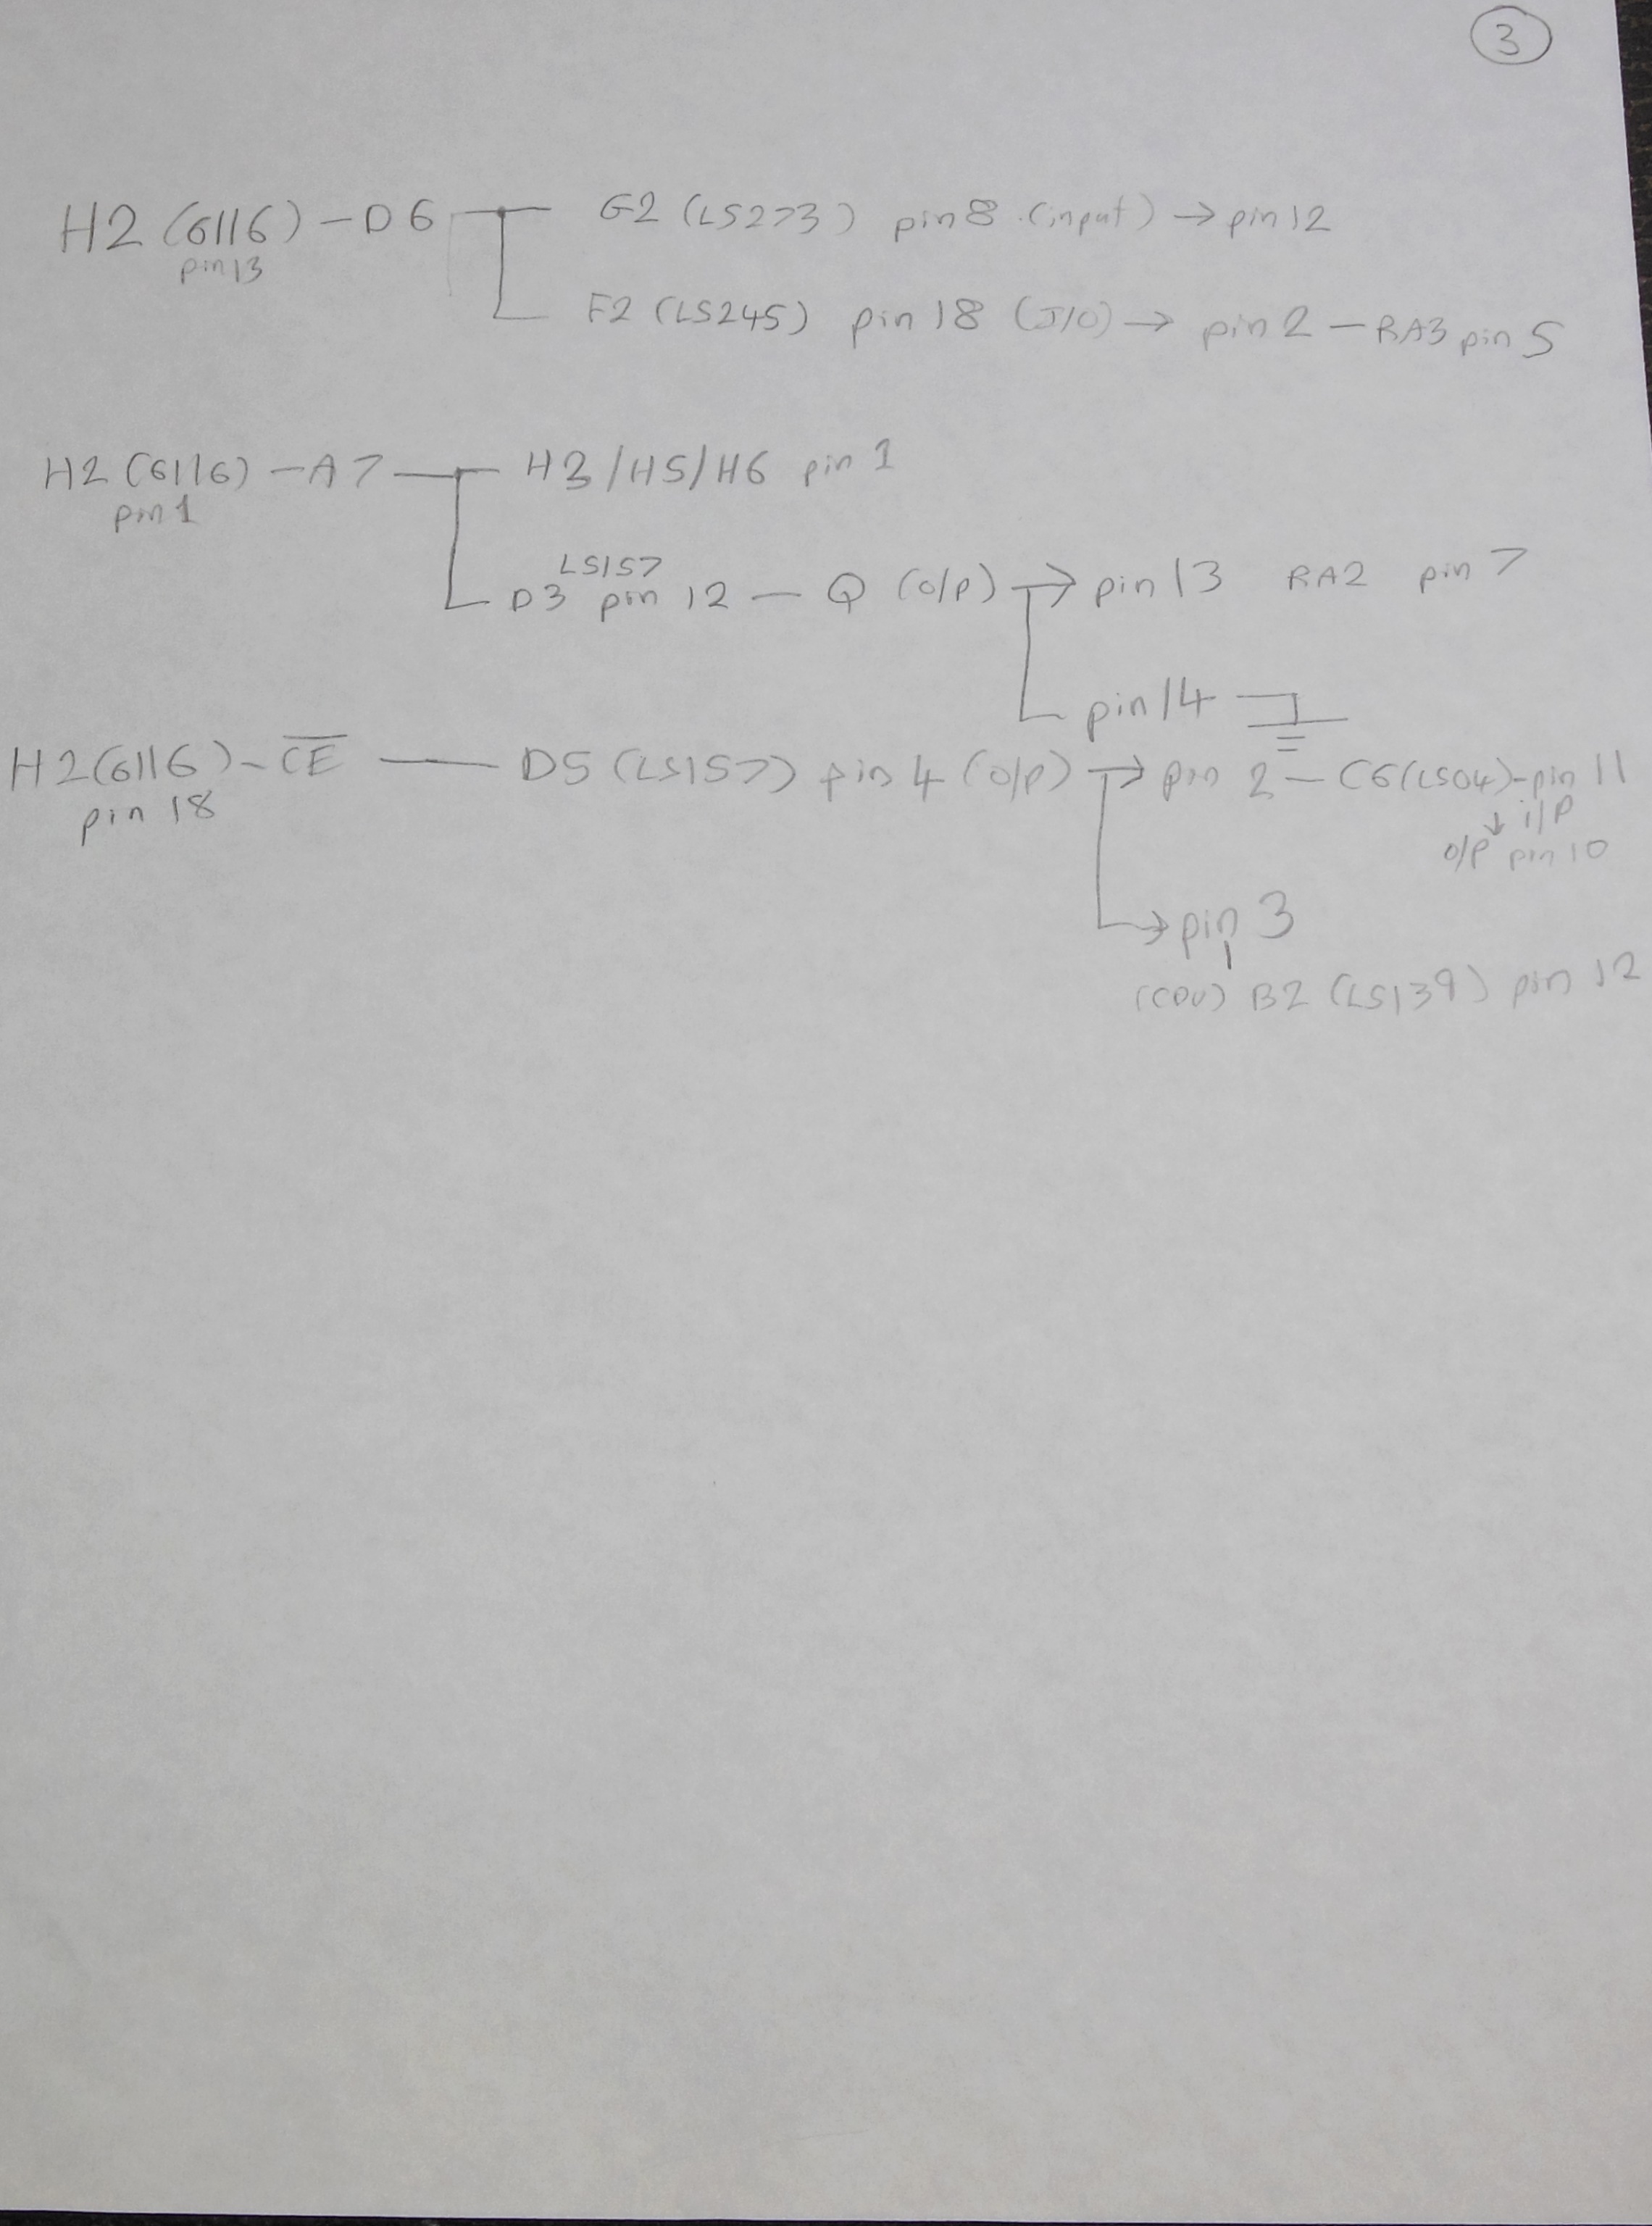 3
H2 (6116) - D6 G2 (LS273) pin 8 (input) → pin 12
pin 13
F2 (LS245) pin 18 (I/O) → pin 2 - RA3 pin 5
H2 (6116) - A7 H3/H5/H6 pin 1
pin 1
LS157
D3 pin 12 - Q (o/p) → pin 13 RA2 pin 7
pin 14
H2 (6116) - C̅E̅ — D5 (LS157) pin 4 (o/p) → pin 2 - C6 (LS04) - pin 11
pin 18 ↓ i/p
o/p pin 10
→ pin 3
(CPU) B2 (LS139) pin 12